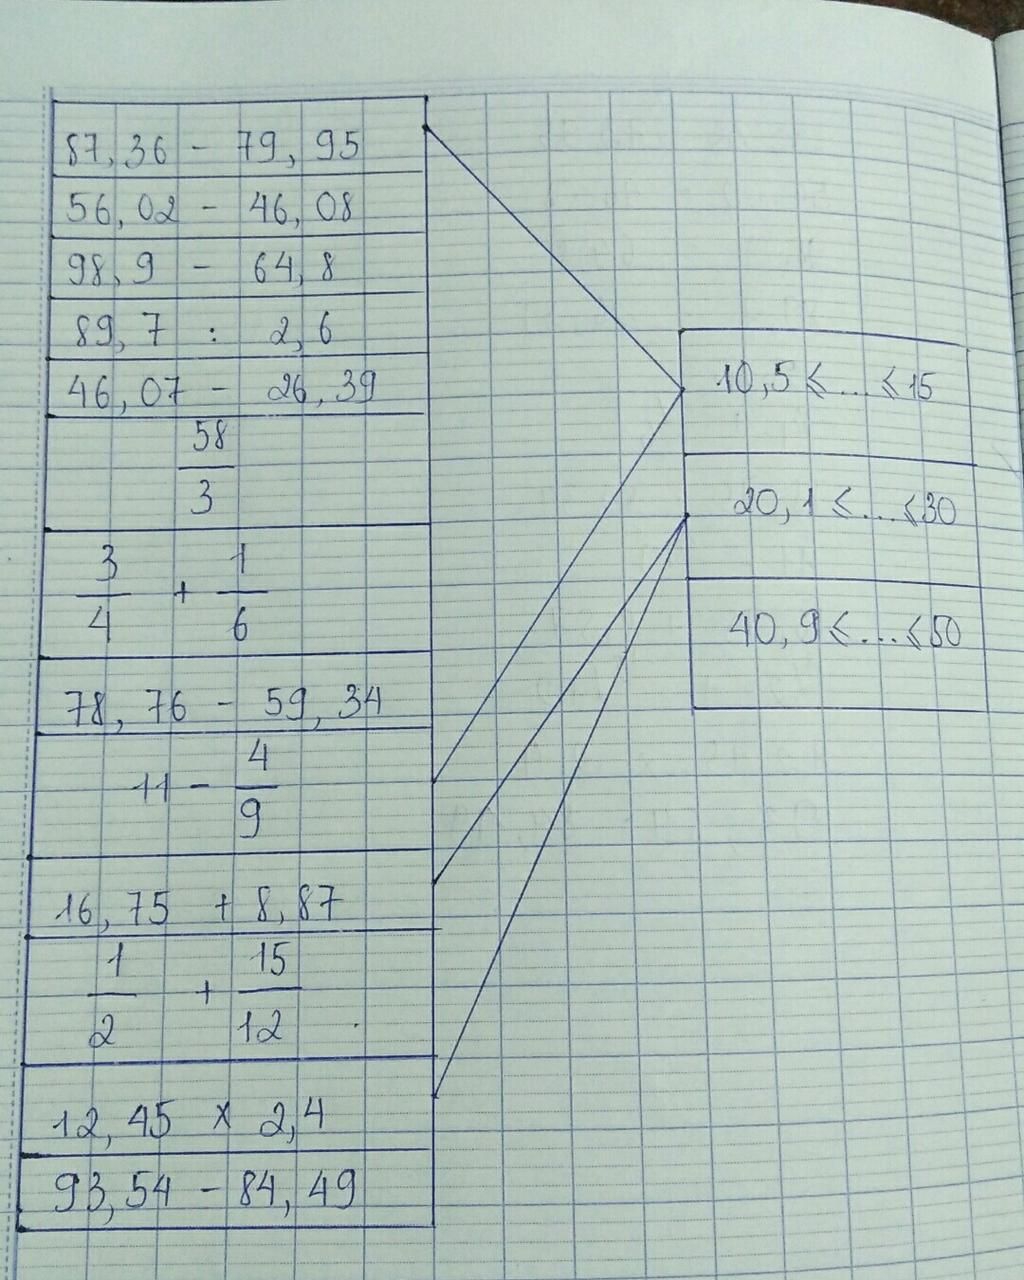 87,36 - 79,95
56,02 - 46,08
98,9 - 64,8
89,7 : 2,6
46,07 - 26,39
58
3
3 1
+
4 6
78,76 - 59,34
4
11 -
9
16,75 + 8,87
1 15
+
2 12
12,45 x 2,4
93,54 - 84,49
10,5 ≤ ... ≤ 15
20,1 ≤ ... ≤ 30
40,9 ≤ ... ≤ 50